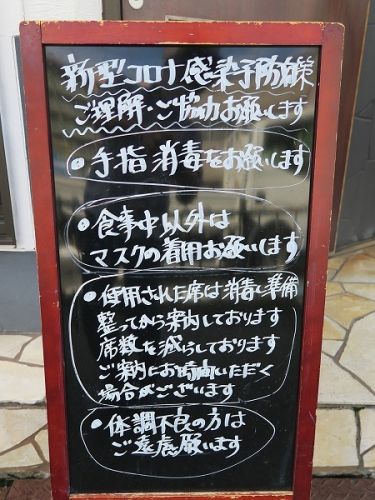 新型コロナ感染予防対策
ご理解・ご協力お願いします
・手指消毒をお願いします
・食事中以外は
マスクの着用お願いします
・使用された席は消毒し準備
整ってから案内しております
席数を減らしております
ご案内にお時間いただく
場合がございます
・体調不良の方は
ご遠慮願います